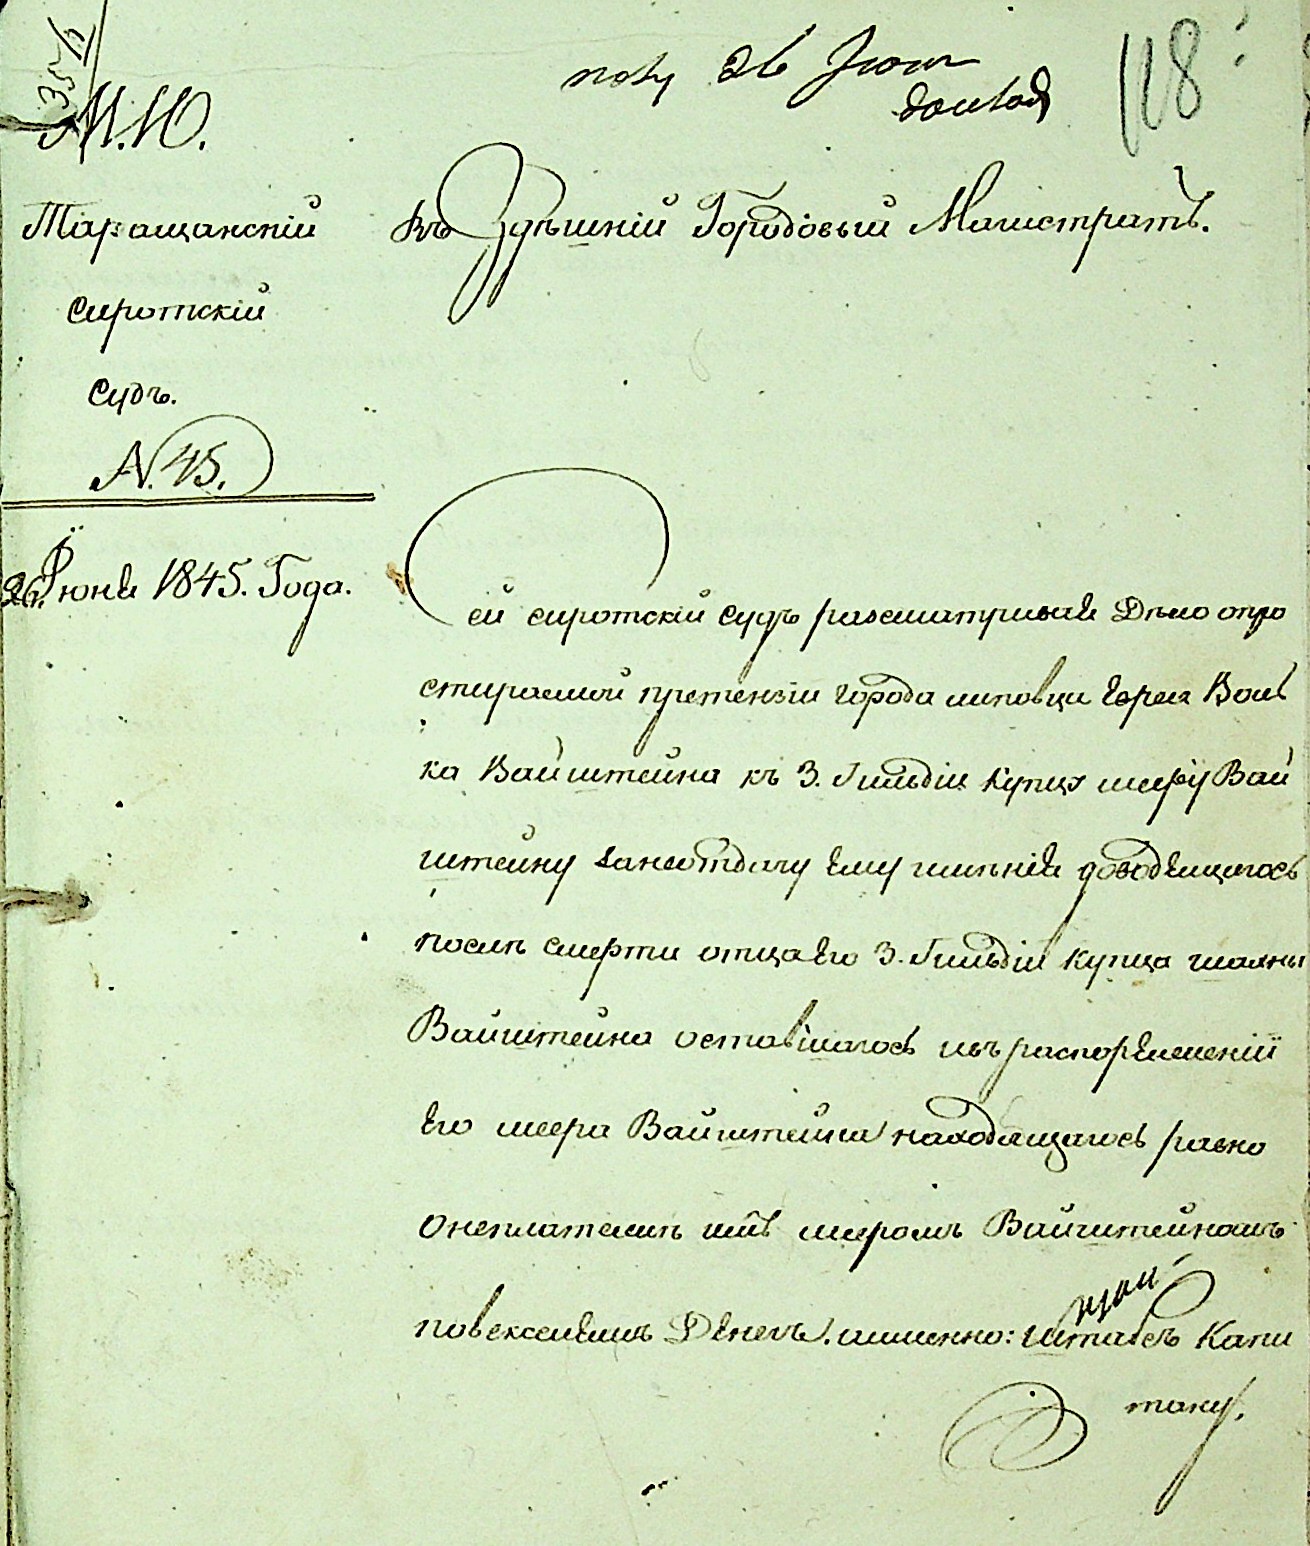 35
М.Ю.
полу 26 Июня
доклад
118
Таращанскій
сиротскій
судъ.
N. 45.
26. Іюня 1845. Года.
Въ Здѣшній Городовый Магистратъ.
Сей сиротскій судъ разсматривая Дѣло опро
стираемой претензіи города липовца Еврея Воль
ка Вайштейна къ 3. Гильдіи купцу мееру Вай
штейну занеотдачу ему имѣнія доводящагось
послѣ смерти отца его 3. Гильдіи купца шаяны
Вайштейна оставшагось ивъ распоряженіи
его меера Вайштейна находящагось равно
Онеплатежѣ имъ меромъ Вайштейномъ
повекселямъ Денегъ. имменно: штабсъ Капи
тану.